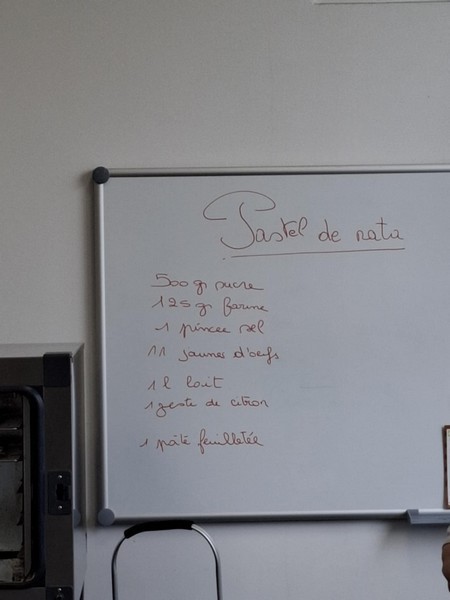 Pastel de nata
500 gr sucre
125 gr farine
1 pincée sel
11 jaunes d'oeufs
1 l lait
1 zeste de citron
1 pâte feuilletée